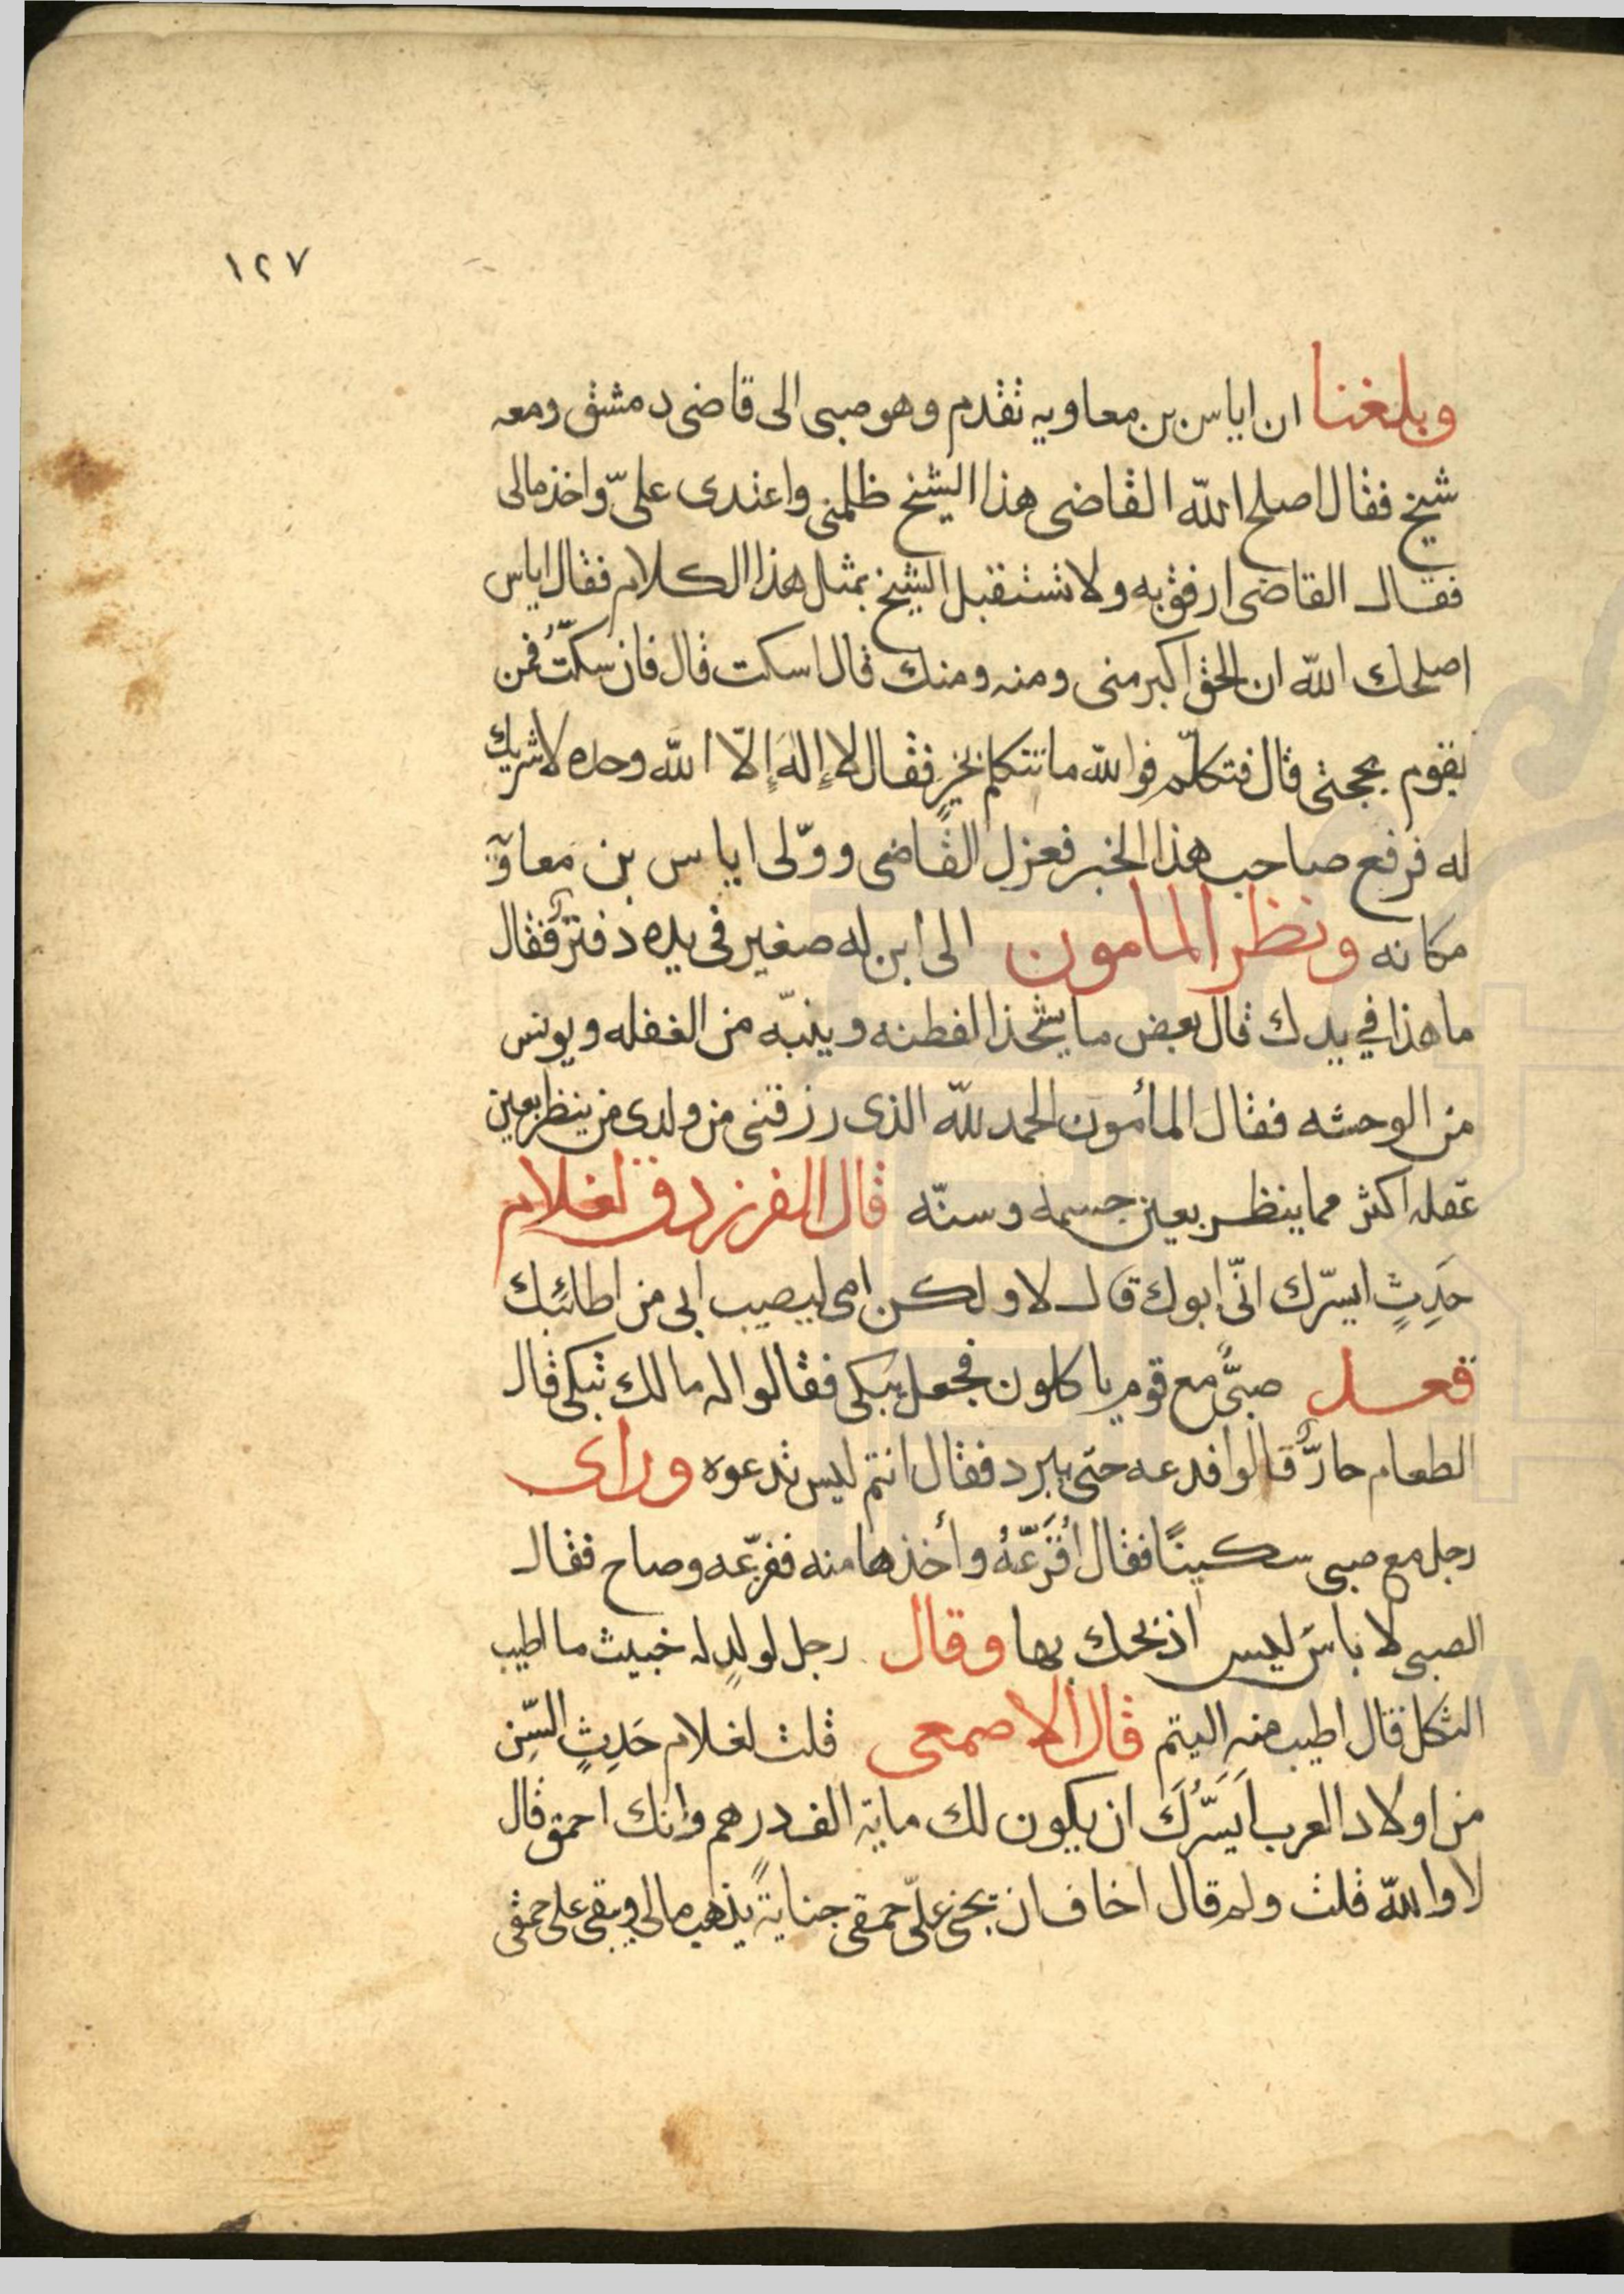 ١٢٧
وبلغنا ان اياس بن معاويه تقدم وهو صبى الى قاضى دمشق ومعه
شيخ فقال اصلح الله القاضى هذا الشيخ ظلمنى واعتدى علىّ واخذ مالى
فقال القاضى ارفق به ولا تستقبل الشيخ بمثل هذا الكلام فقال اياس
اصلحك الله ان الحق اكبر منى ومنه ومنك قال اسكت قال فان سكتُّ فمن
يقوم بحجتى قال فتكلّم فوالله ما تتكلم بخيرٍ فقال لا إله إلّا الله وحده لا شريك
له فرفع صاحب هذا الخبر فعزل القاضى وولّى اياس بن معاوية
مكانه ونظر المامون الى ابن له صغير فى يده دفتر فقال
ما هذا في يدك قال بعض ما يشحذ الفطنه وينبّه من الغفله ويونس
من الوحشه فقال المأمون الحمد لله الذى رزقنى من ولدى من ينظر بعين
عقله اكثر مما ينظر بعين جسمه وسنّه قال الفرزدق لغلام
حَدِثٍ ايسرّك انّى ابوك قال لا ولكن امى ليصيب ابى من اطائبك
قعد صبىٌّ مع قوم ياكلون فجعل يبكى فقالوا له مالك تبكى قال
الطعام حارٌّ قالوا فدعه حتى يبرد فقال انتم ليس تدعوه وراى
رجل مع صبى سكينًا فقال أُفَزّعُهُ وأخذها منه ففزّعه وصاح فقال
الصبى لا باس ليس اذبحك بها وقال رجل لولدٍ له خبيث ما اطيب
الثكل قال اطيب منه اليتم قال الاصمعى قلت لغلام حَدِثٍ السِّن
من اولاد العرب اَيَسُرُّكَ ان يكون لك ماية الف درهم وانك احمق قال
لا والله قلت ولم قال اخاف ان تجنى علىّ حمقى جنايةً يذهب مالى ويبقى على حمقى